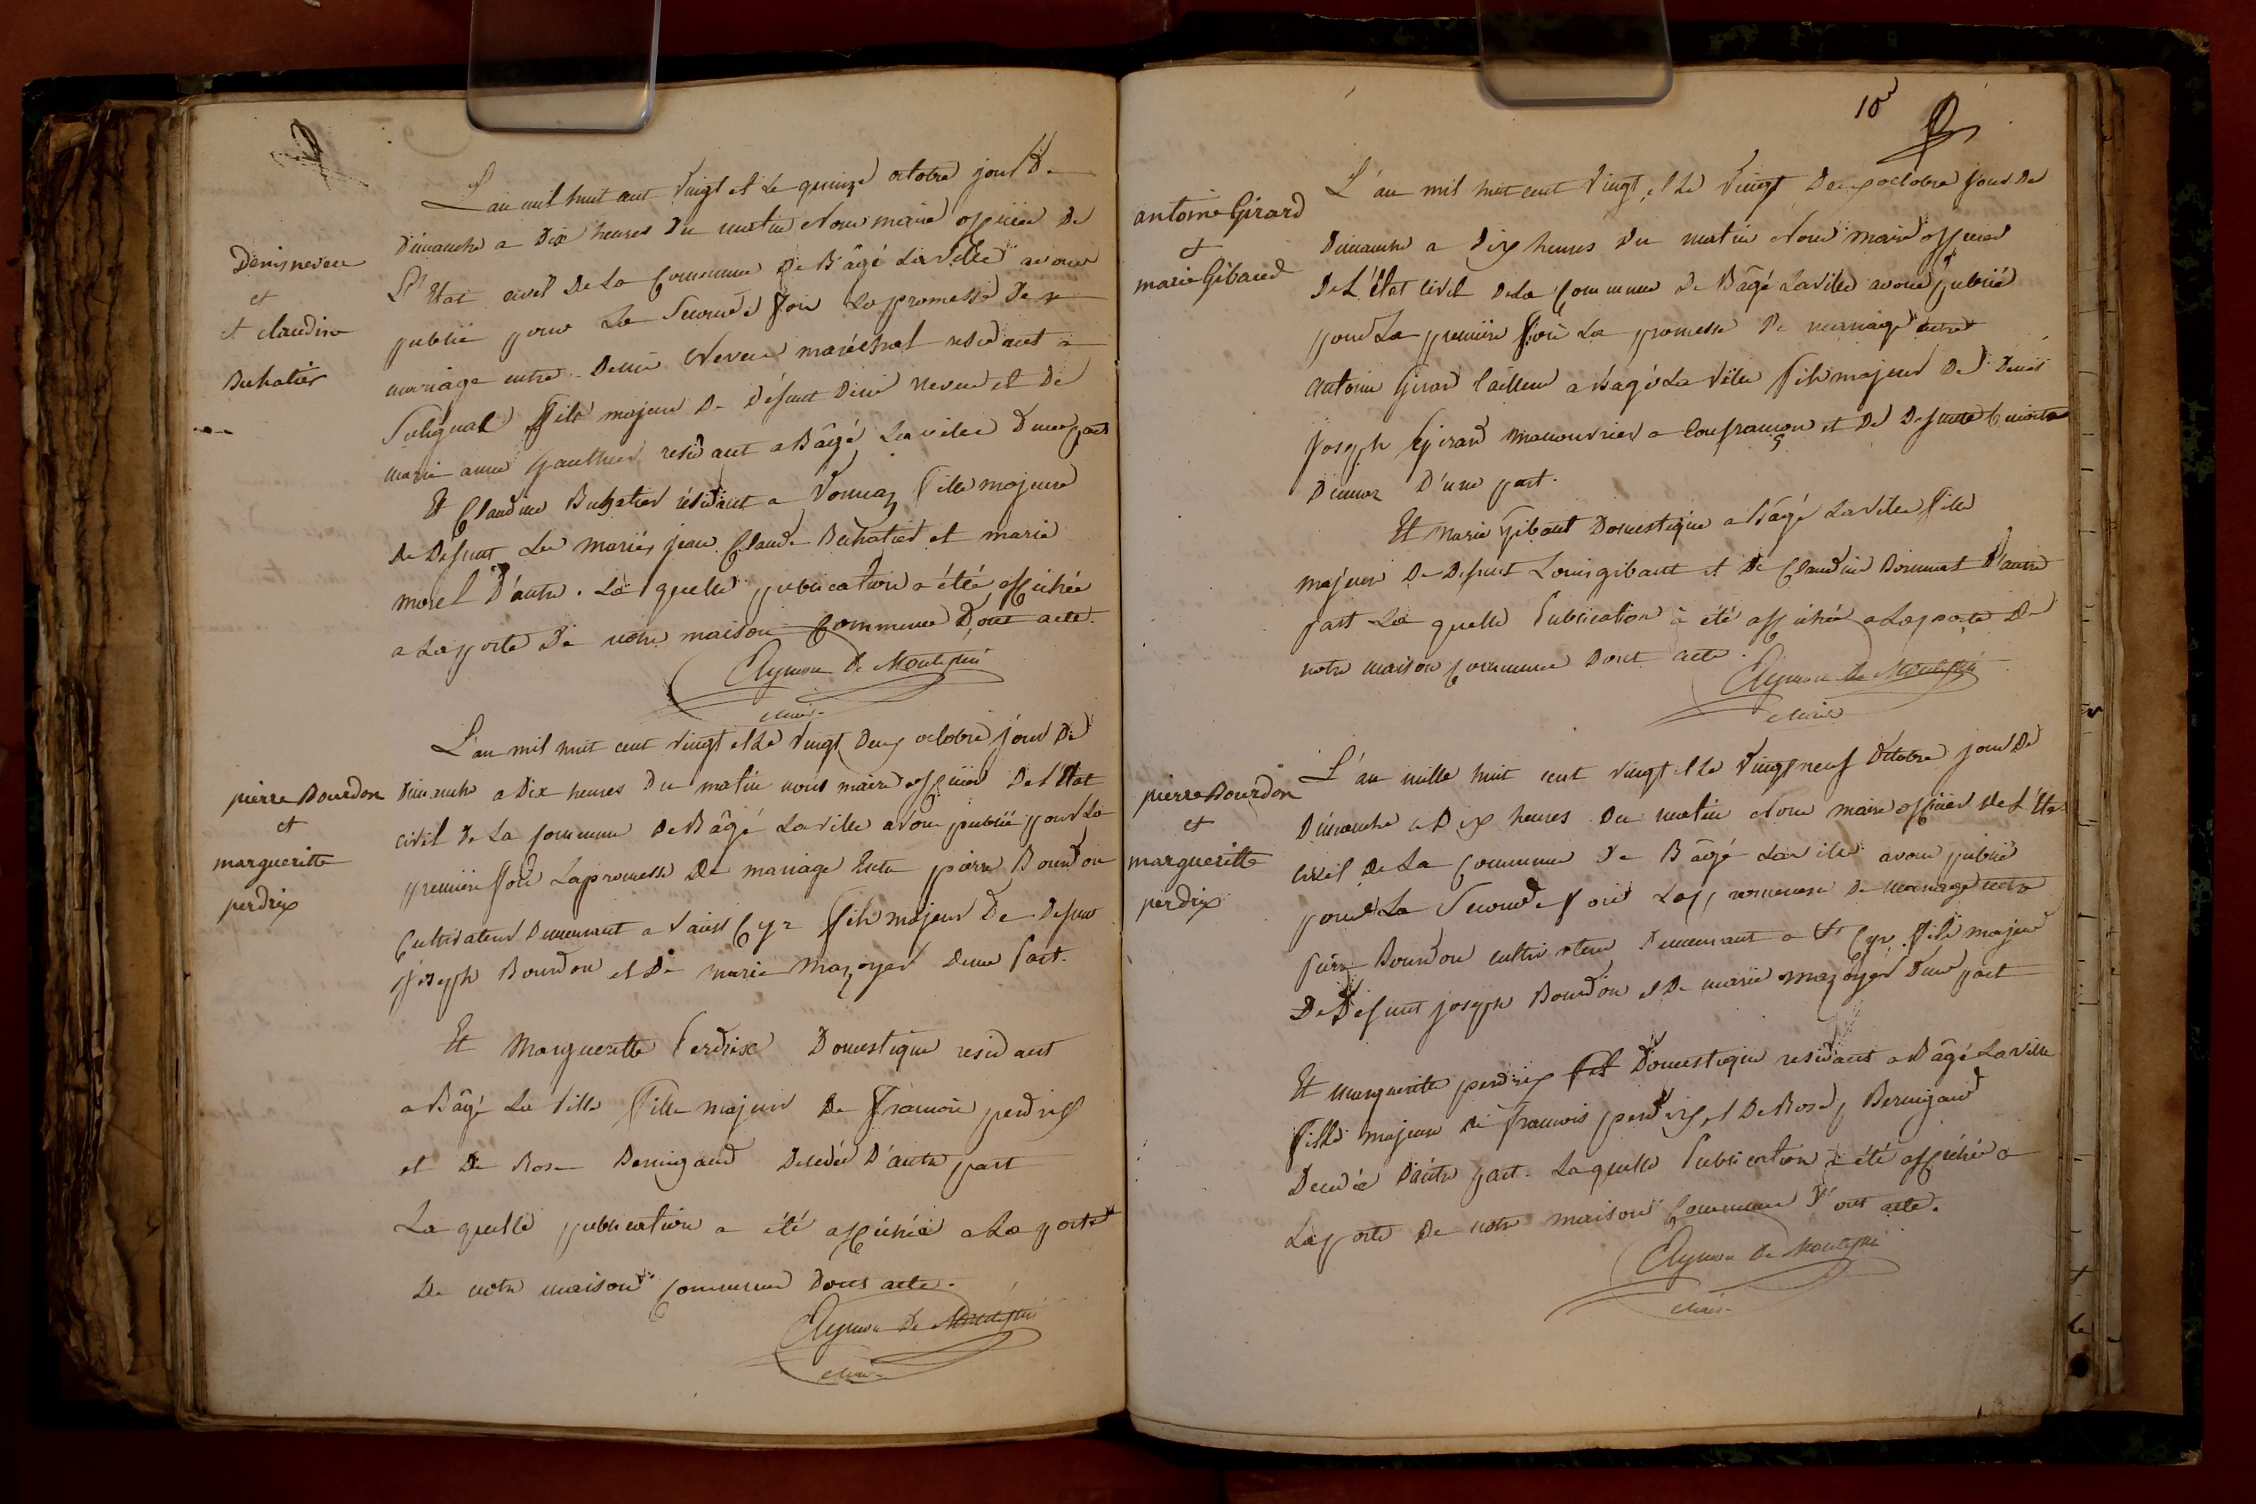 Denis neveu
et
et claudine
Buhatier
L'an mil huit cent vingt et le quinze octobre jour de
Dimanche a Dix heures Du matin Nous maire officier De
L'Etat civil De La Commune De Bâgé La Ville avons
publié pour La Seconde fois La promesse De
mariage entre Denis Neveu maréchal residant a
Fils majeur De Défunt Denis neveu et De
marie anne Gauthier residant a Bâgé La ville D'une part
Et Claudine Buhatier résidant a Vonnaz fille majeure
De Defunt Les mariés jean Claude Buhatier et marie
morel D'autre . La quelle publication a été affichée
a La porte De notre maison Commune Dont acte.
Aymon De Montepin
Maire
pierre Bourdon
et
margueritte
perdrix
L'an mil huit cent vingt et Le vingt Deux octobre jour De
Dimanche a Dix heures Du matin nous maire officier De L'Etat
civil De La Commune De Bâgé La ville avons publié pour La
premiere fois La promesse De mariage Entre pierre Bourdon
Cultivateur Demeurant a Saint Cyr fils majeur De Defunt
joseph Bourdon et De marie Mazoyer D'une part.
Et Margueritte Perdrix Domestique residant
a Bâgé La Ville Fille majeure De François perdrix
et De Rose Bernigaud Decedée D'autre part
La quelle publication a été affichée a La porte
De notre maison Commune Dont acte.
Aymon De Montepin
Maire
10
antoine Girard
et
marie Gibaud
L'an mil huit cent Vingt et Le Vingt Deux octobre jour De
Dimanche a Dix heures Du matin Nous maire officier
De L'état Civil De La Commune De Bâgé La Ville avons publié
pour La premiere fois La promesse De mariage entre
antoine Girard tailleur a Bâgé La Ville fils majeur De
joseph Girard manouvrier a Confrançon et De Defunte
D'une part.
Et Marie Gibaut Domestique a Bâgé La Ville fille
majeure De Defunt Louis gibaut et De Claudine Bonnat D'autre
part La quelle Publication a été affichée a La porte De
notre maison Commune Dont acte.
Aymon De Montepin
Maire
pierre Bourdon
et
margueritte
perdrix
L'an mille huit cent vingt et Le Vingt neuf Octobre jour De
Dimanche a Dix heures Du matin Nous maire officier De L'Etat
Civil De La Commune De Bâgé La ville avons publié
pour La Seconde fois La promesse De mariage entre
pierre Bourdon cultivateur Demeurant a St Cyr fils majeur
De Defunt joseph Bourdon et De marie mazoyer D'une part
Et margueritte perdrix Domestique residant a Bâgé La Ville
fille majeure De François perdrix et De Rose Bernigaud
Decedée D'autre part. La quelle Publication a été affichée a
La porte De notre maison Commune Dont acte.
Aymon De Montepin
Maire